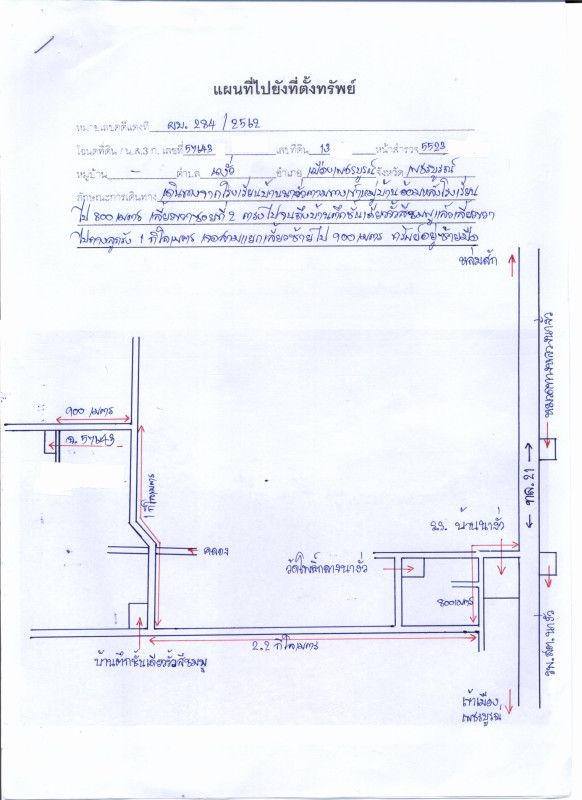 แผนที่ไปยังที่ตั้งทรัพย์
หมายเลขคดีแดงที่ ผบ. 284 / 2562
โฉนดที่ดิน / น.ส.3 ก. เลขที่ 57643 เลขที่ดิน 13 หน้าสำรวจ 5523
หมู่บ้าน - ตำบล นางั่ว อำเภอ เมืองเพชรบูรณ์ จังหวัด เพชรบูรณ์
ลักษณะการเดินทาง เดินทางจากโรงเรียนบ้านนางั่วตามทางเข้าหมู่บ้านอ้อมหลังโรงเรียน
ไป 800 เมตร เลี้ยวขวาซอยที่ 2 ตรงไปจนถึงบ้านตึกชั้นเดียวรั้วสีชมพูแล้วเลี้ยวขวา
ไปทางลูกรัง 1 กิโลเมตร เจอสามแยกเลี้ยวซ้ายไป 900 เมตร ทรัพย์อยู่ซ้ายมือ
หล่มสัก
หมวดทางหลวงนางั่ว
900 เมตร
ฉ. 57643
1 กิโลเมตร
← ทล. 21 →
ร.ร. บ้านนางั่ว
คลอง
วัดโพธิ์กลางนางั่ว
800 เมตร
รพ. สต. นางั่ว
2.2 กิโลเมตร
บ้านตึกชั้นเดียวรั้วสีชมพู
เข้าเมือง
เพชรบูรณ์